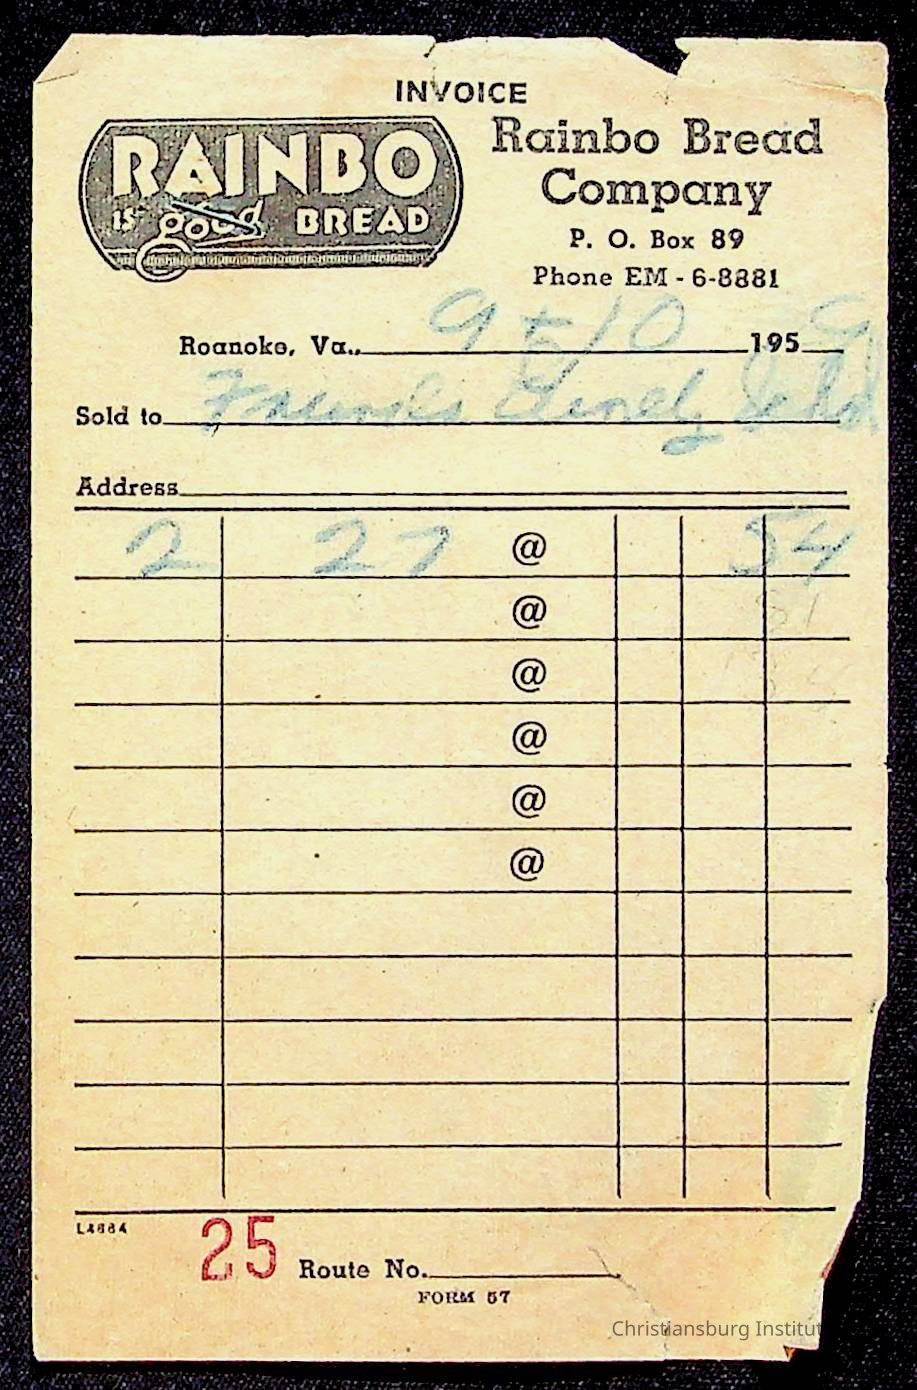 INVOICE
RAINBO
IS good BREAD
Rainbo Bread
Company
P. O. Box 89
Phone EM - 6-8881
Roanoke, Va., 9 10 195 9
Sold to
Address
2 27 @ 54
@
@
@
@
@
L4884
25 Route No.
FORM 57
Christiansburg Institut